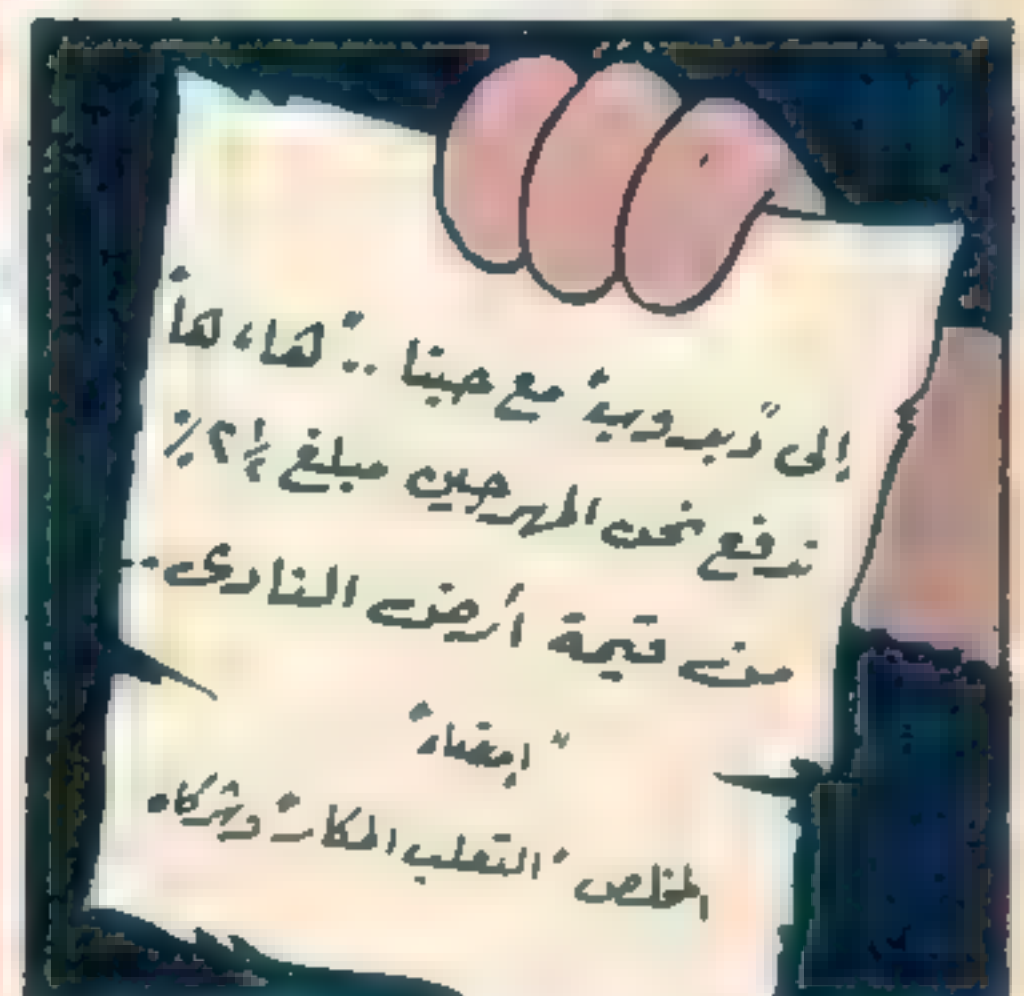 إلى "زبدوبة" مع حبنا .. "ها، هأ"
ندفع نحن المهرجين مبلغ ½ ٢ ٪
من قيمة أرض النادى ..
"إمضاء"
المخلص "الثعلب المكار" وشركاه